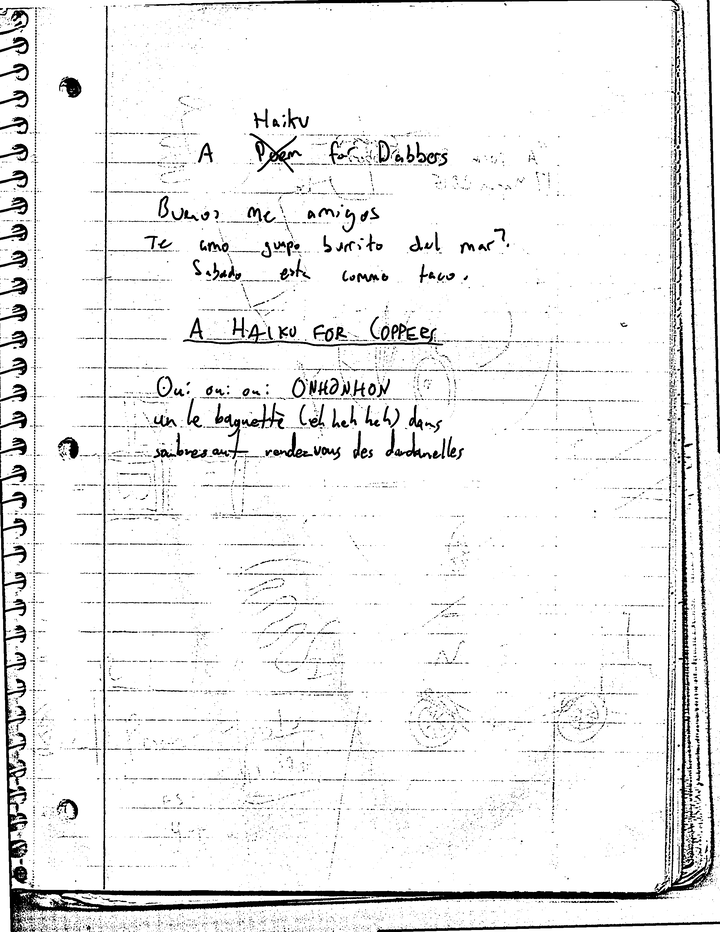 Haiku
A Poem for Dabbers
Buenos me amigos
Te amo guapo burrito del mar?
Sabado esta commo taco.
A HAIKU FOR COPPERS
Oui oui oui ONHONHON
un le baguette (eh heh heh) dans
rendezvous des dardanelles